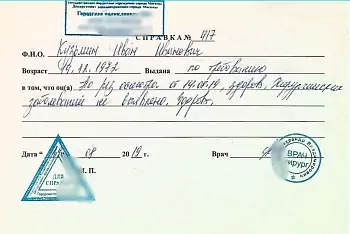 Государственное бюджетное учреждение города Москвы
Департамента здравоохранения города Москвы
Городская
СПРАВКА № 417
Ф.И.О. Кузьмин Иван Иванович
Возраст 19.12.1972 Выдана по требованию
в том, что он(а) По рез осмотра от 14.08.19, здоров. Хирургических
заболеваний не выявлено. Здоров.
Дата 08 2019 г. Врач
М. П.
ДЛЯ
СПРАВ
ВРАЧ
хирург